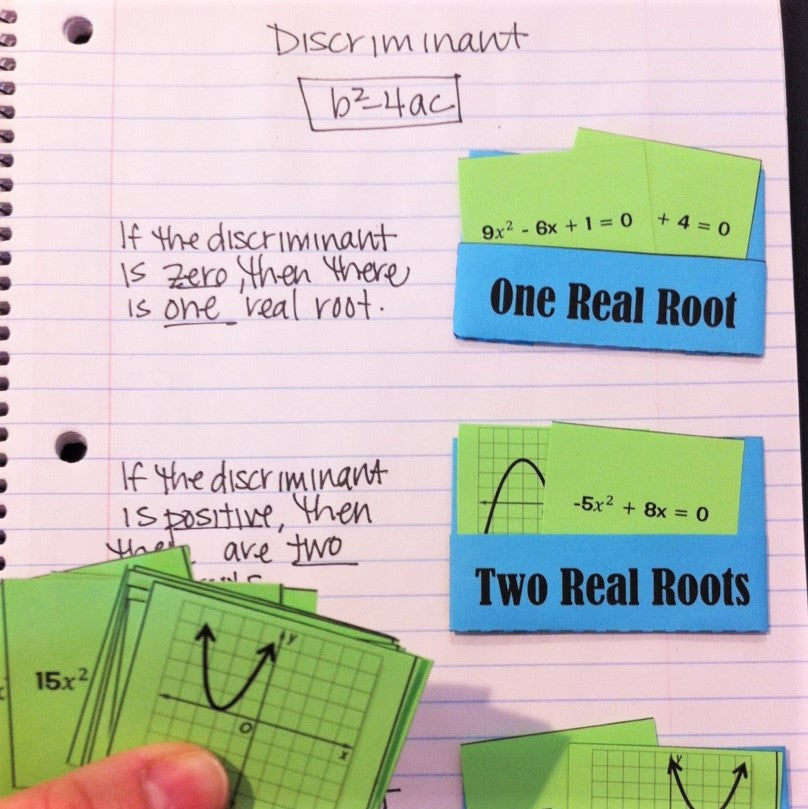 Discriminant
b²-4ac
If the discriminant
is zero, then there
is one real root.
9x² - 6x + 1 = 0
+ 4 = 0
One Real Root
If the discriminant
is positive, then
are two
-5x² + 8x = 0
Two Real Roots
15x²
y
O
x
y